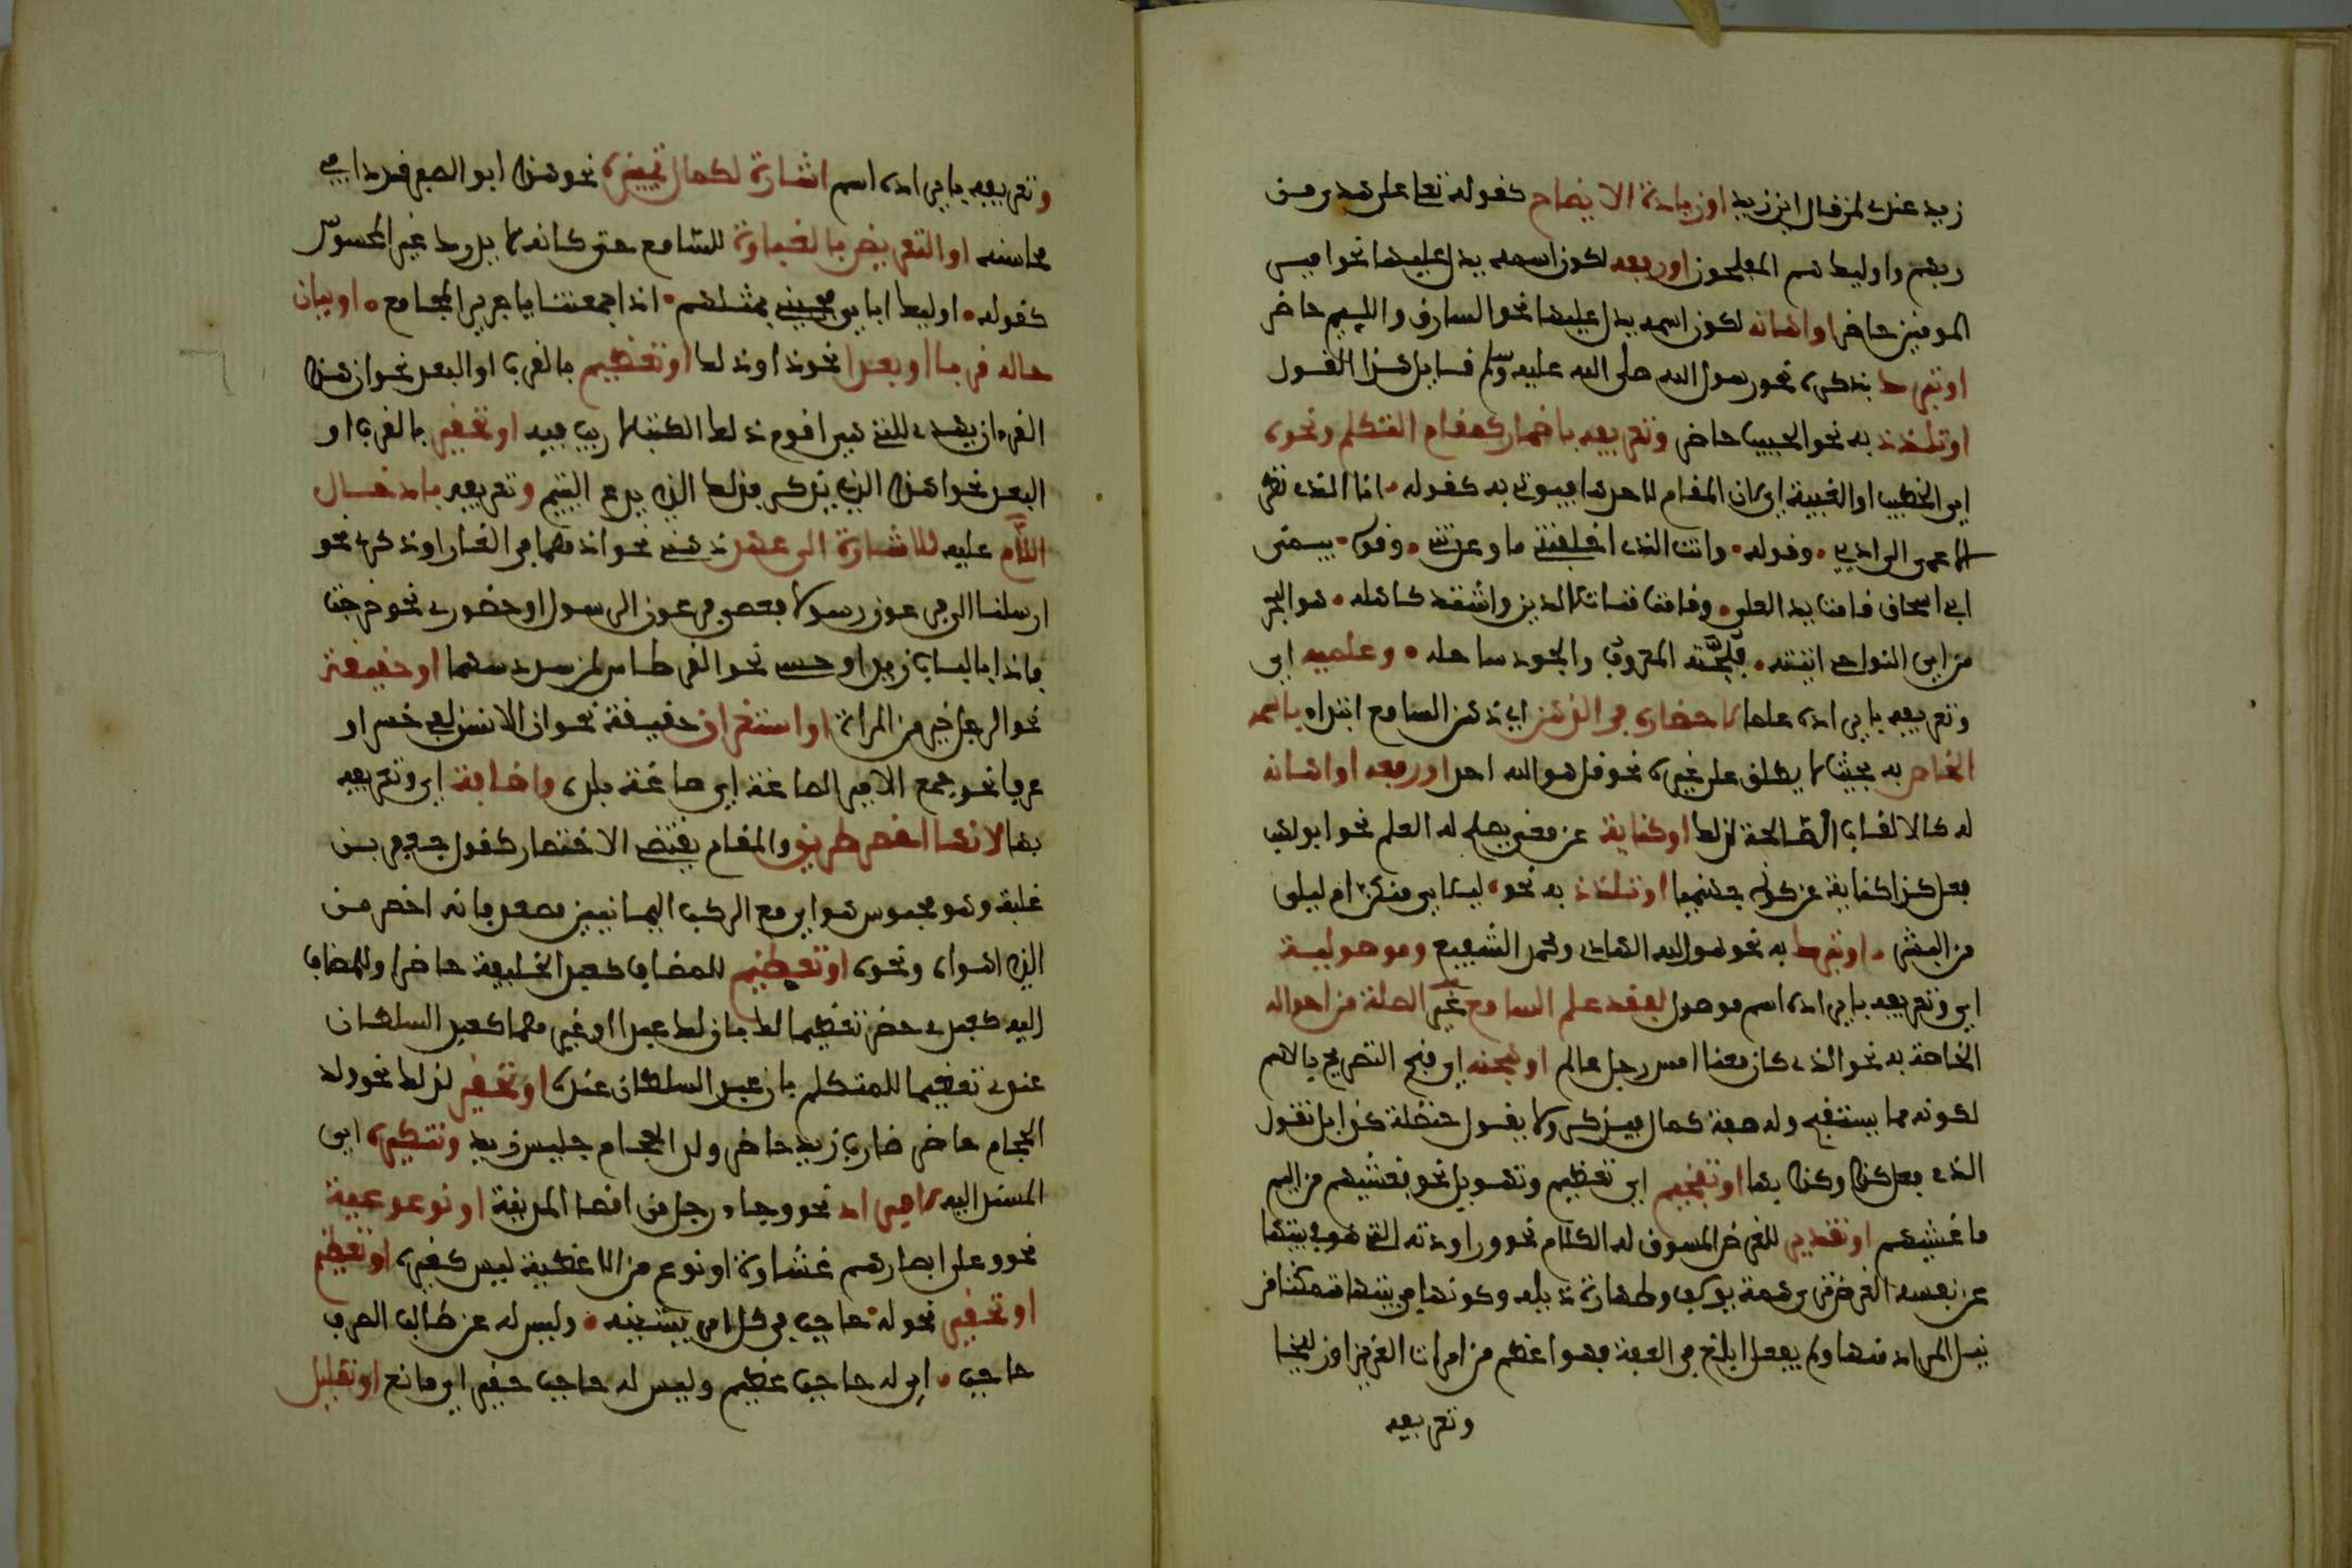 زيد عندك لمن قال اين زيد او زيادة الايضاح كقوله تعا على هدى من
ربهم واوليك هم المفلحون او رفعه لكون اسمه يدل عليها نحو امير
المومنين حاضر او اهانه لكون اسمه يدل عليها نحو السارق واللييم حاضر
او تبرك بذكره نحو رسول الله صلى الله عليه وسلم قايل هذا القول
او تلذذ به نحو الحبيب حاضر وتعريفه باضمار كمقام التكلم ونحوه
اي الخطاب او الغيبة اي لان المقام لاحدها فيوتى به كقوله انا الذي نظر
الاعمى الى ادبي وقوله وانت الذي اخلفتني ما وعدتني وقوله بيمنى
ابي اسحاق طالت يد العلى وقامت قناة الدين واشتد كاهله هو البحر
من اي النواحي اتيته فلجته المعروف والجود ساحله وعلميه اي
وتعريفه بايراده علما لاحضاره في الذهن اي ذهن السامع ابتداء باسمه
الخاص به بحيث لا يطلق على غيره نحو قل هو الله احد او رفعه او اهانه
له كالالقاب الصالحة لذلك او كناية عن معنى يصلح له العلم نحو ابو لهب
فعل كذا كناية عن كونه جهنميا او تلذذ به نحو ليلاي منكن ام ليلى
من البشر او تبرك به نحو هو الله الهادي ومحمد الشفيع وموصولية
اي وتعريفه بايراده اسم موصول لفقد علم السامع غير الصلة من احواله
الخاصة به نحو الذي كان معنا امس رجل عالم او هجنه اي قبح التصريح بالاسم
لكونه مما يستقبح وله صفة كمال فيذكر ولا يقول حنظلة كذا بل تقول
الذي فعل كذا وكذا بها او تفخيم اي تعظيم وتهويل نحو فغشيهم من اليم
ما غشيهم او تقدير للغرض المسوق له الكلام نحو وراودته التي هو في بيتها
عن نفسه الغرض نزهة يوسف وطهارة ذيله وكونها في بيتها متمكنا من
نيل المراد منها ولم يفعل ابلغ في العفة فهو اعظم من امرات العزيز او زليخا
وتعريفه
وتعريفه بايراده اسم اشارة لكمال تمييزه نحو هذا ابو الصقر فردا في
محاسنه او التعريض بالغباوة للسامع حتى كانه لا يدرك غير المحسوس
كقوله اوليك ابايي فجيني بمثلهم اذا جمعتنا يا جرير المجامع او بيان
حاله قربا او بعدا نحو ذا وذلك او تعظيم بالقرب او البعد نحو ان هذا
القرءان يهدي للتي هي اقوم ذلك الكتب لا ريب فيه او تحقير بالقرب او
البعد نحو اهذا الذي يذكر فذلك الذي يدع اليتيم وتعريفه بادخال
اللام عليه للاشارة الى عهد ذهني نحو اذ هما في الغار او ذكري نحو
ارسلنا الى فرعون رسولا فعصى فرعون الرسول او حضوري نحو خرجت
فاذا بالباب زيد او حسي نحو القرطاس لمن سدد سهما او حقيقة
نحو الرجل خير من المراة او استغراق حقيقة نحو ان الانسن لفي خسر او
عرفا نحو جمع الامير الصاغة اي صاغة بلده واضافة اي وتعريفه
بها لانها اخصر طريق والمقام يقتضي الاختصار كقول جعفر بن
علبة وهو محبوس هواي مع الركب اليمانيين مصعد فانه اخصر من
الذي اهواه ونحوه او تعظيم للمضاف كعبد الخليفة حاضر او للمضاف
اليه كعبدي حضر تعظيما لك بان لك عبدا او غيرهما كعبد السلطان
عندي تعظيما للمتكلم بان عبد السلطان عنده او تحقير لذلك نحو ولد
الحجام حاضر ضارب زيد حاضر ولد الحجام جليس زيد وتنكيره اي
المسند اليه لافراد نحو وجاء رجل من اقصا المدينة او نوعية
نحو وعلى ابصارهم غشاوة او نوع من الاغطية ليس كغيره او تعظيم
او تحقير نحو له حاجب في كل امر يشينه وليس له عن طالب العرف
حاجب اي له حاجب عظيم وليس له حاجب حقير اي مانع او تقليل